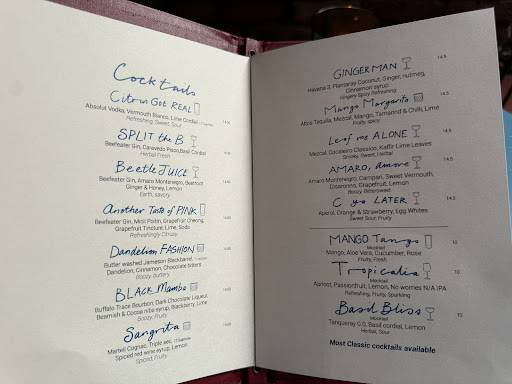 Cocktails
Citrus Got REAL
Absolut Vodka, Vermouth Bianco, Lime Cordial
Refreshing, Sweet, Sour
SPLIT the B
Beefeater Gin, Caravedo Pisco, Basil Cordial
Herbal Fresh
BeetleJUICE
Beefeater Gin, Amaro Montenegro, Beetroot
Ginger & Honey, Lemon
Earth, savory
Another Taste of PINK
Beefeater Gin, Grapefruit
Grapefruit Tincture, Lime, Soda
Refreshingly Citrusy
Dandelion FASHION
Butter washed Jameson Blackbarrel,
Dandelion, Cinnamon, Chocolate bitters
Boozy, buttery
BLACK Mamba
Buffalo Trace Bourbon, Dark Chocolate Liqueur,
Beamish & Cocoa nibs syrup, Blackberry, Lime
Boozy, Fruity
Sangrita
Martell Cognac, Triple sec,
Spiced red wine syrup, Lemon
Spiced, Fruity
GINGERMAN 14.5
Havana 3, Plantaray Coconut, Ginger, nutmeg,
Cinnamon syrup
Gingery Spicy Refreshing
Mango Margarita 14.5
Altos Tequila, Mezcal, Mango, Tamarind & Chilli, Lime
Fruity, spicy
Leaf us ALONE 14.5
Mezcal, Cocalero Classico, Kaffir Lime Leaves
Smoky, Sweet, Herbal
AMARO, amore 14.5
Amaro Montenegro, Campari, Sweet Vermouth,
Disaronno, Grapefruit, Lemon
Boozy, Bittersweet
C yo LATER 14.5
Aperol, Orange & Strawberry, Egg Whites
Sweet, Sour, Fruit
MANGO Tango 10
Mocktail
Mango, Aloe Vera, Cucumber, Rose
Fruity, Fresh
Tropicalia 10
Mocktail
Apricot, Passionfruit, Lemon, No worries N/A IPA
Refreshing, Fruity, Sparking
Basil Bliss 10
Mocktail
Tanqueray 0.0, Basil cordial, Lemon
Herbal, Sour
Most Classic cocktails available